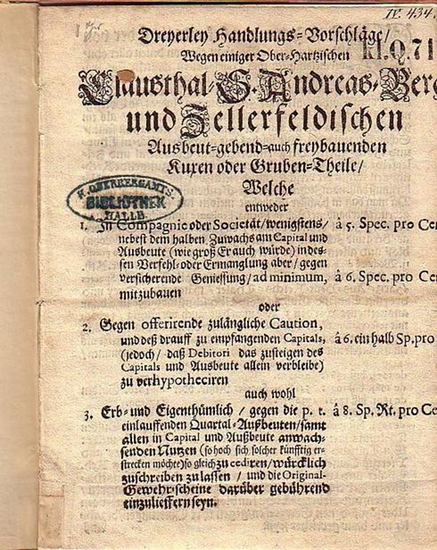 IV. 434.
Dreyerley Handlungs-Vorschläge/
Wegen einiger Ober-Hartzischen
H.Q.71
Clausthal-S. Andreas-Berg
und Zellerfeldischen
Ausbeut-gebend-auch freybauenden
Kuxen oder Gruben-Theile/
Welche
entweder
K. OBERBERGAMTS
BIBLIOTHEK
HALLE.
1. In Compagnie oder Societät/wenigstens/ à 5. Spec. pro Ce
nebest dem halben Zuwachs am Capital und
Ausbeute (wie groß Er auch würde) indes-
sen Verfehl-oder Ermanglung aber/gegen
versicherende Geniessung/ad minimum, à 6. Spec. pro Ce
mitzubauen
oder
2. Gegen offerirende zulängliche Caution,
und deß drauff zu empfangenden Capitals, à 6. ein halb Sp.pro
(jedoch/ daß Debitori das zusteigen des
Capitals und Ausbeute allein verbleibe)
zu verhypotheciren
auch wohl
3. Erb- und Eigenthümlich / gegen die p. t. à 8. Sp. Rt. pro Ce
einlauffenden Quartal-Außbeuten/samt
allen in Capital und Außbeute anwach-
senden Nutzen (so hoch sich solcher künfftig er-
strecken möchte) so gleich zu cediren/würcklich
zuschreiben zu lassen / und die Original-
Gewehrscheine darüber gebührend
einzulieffern seyn.